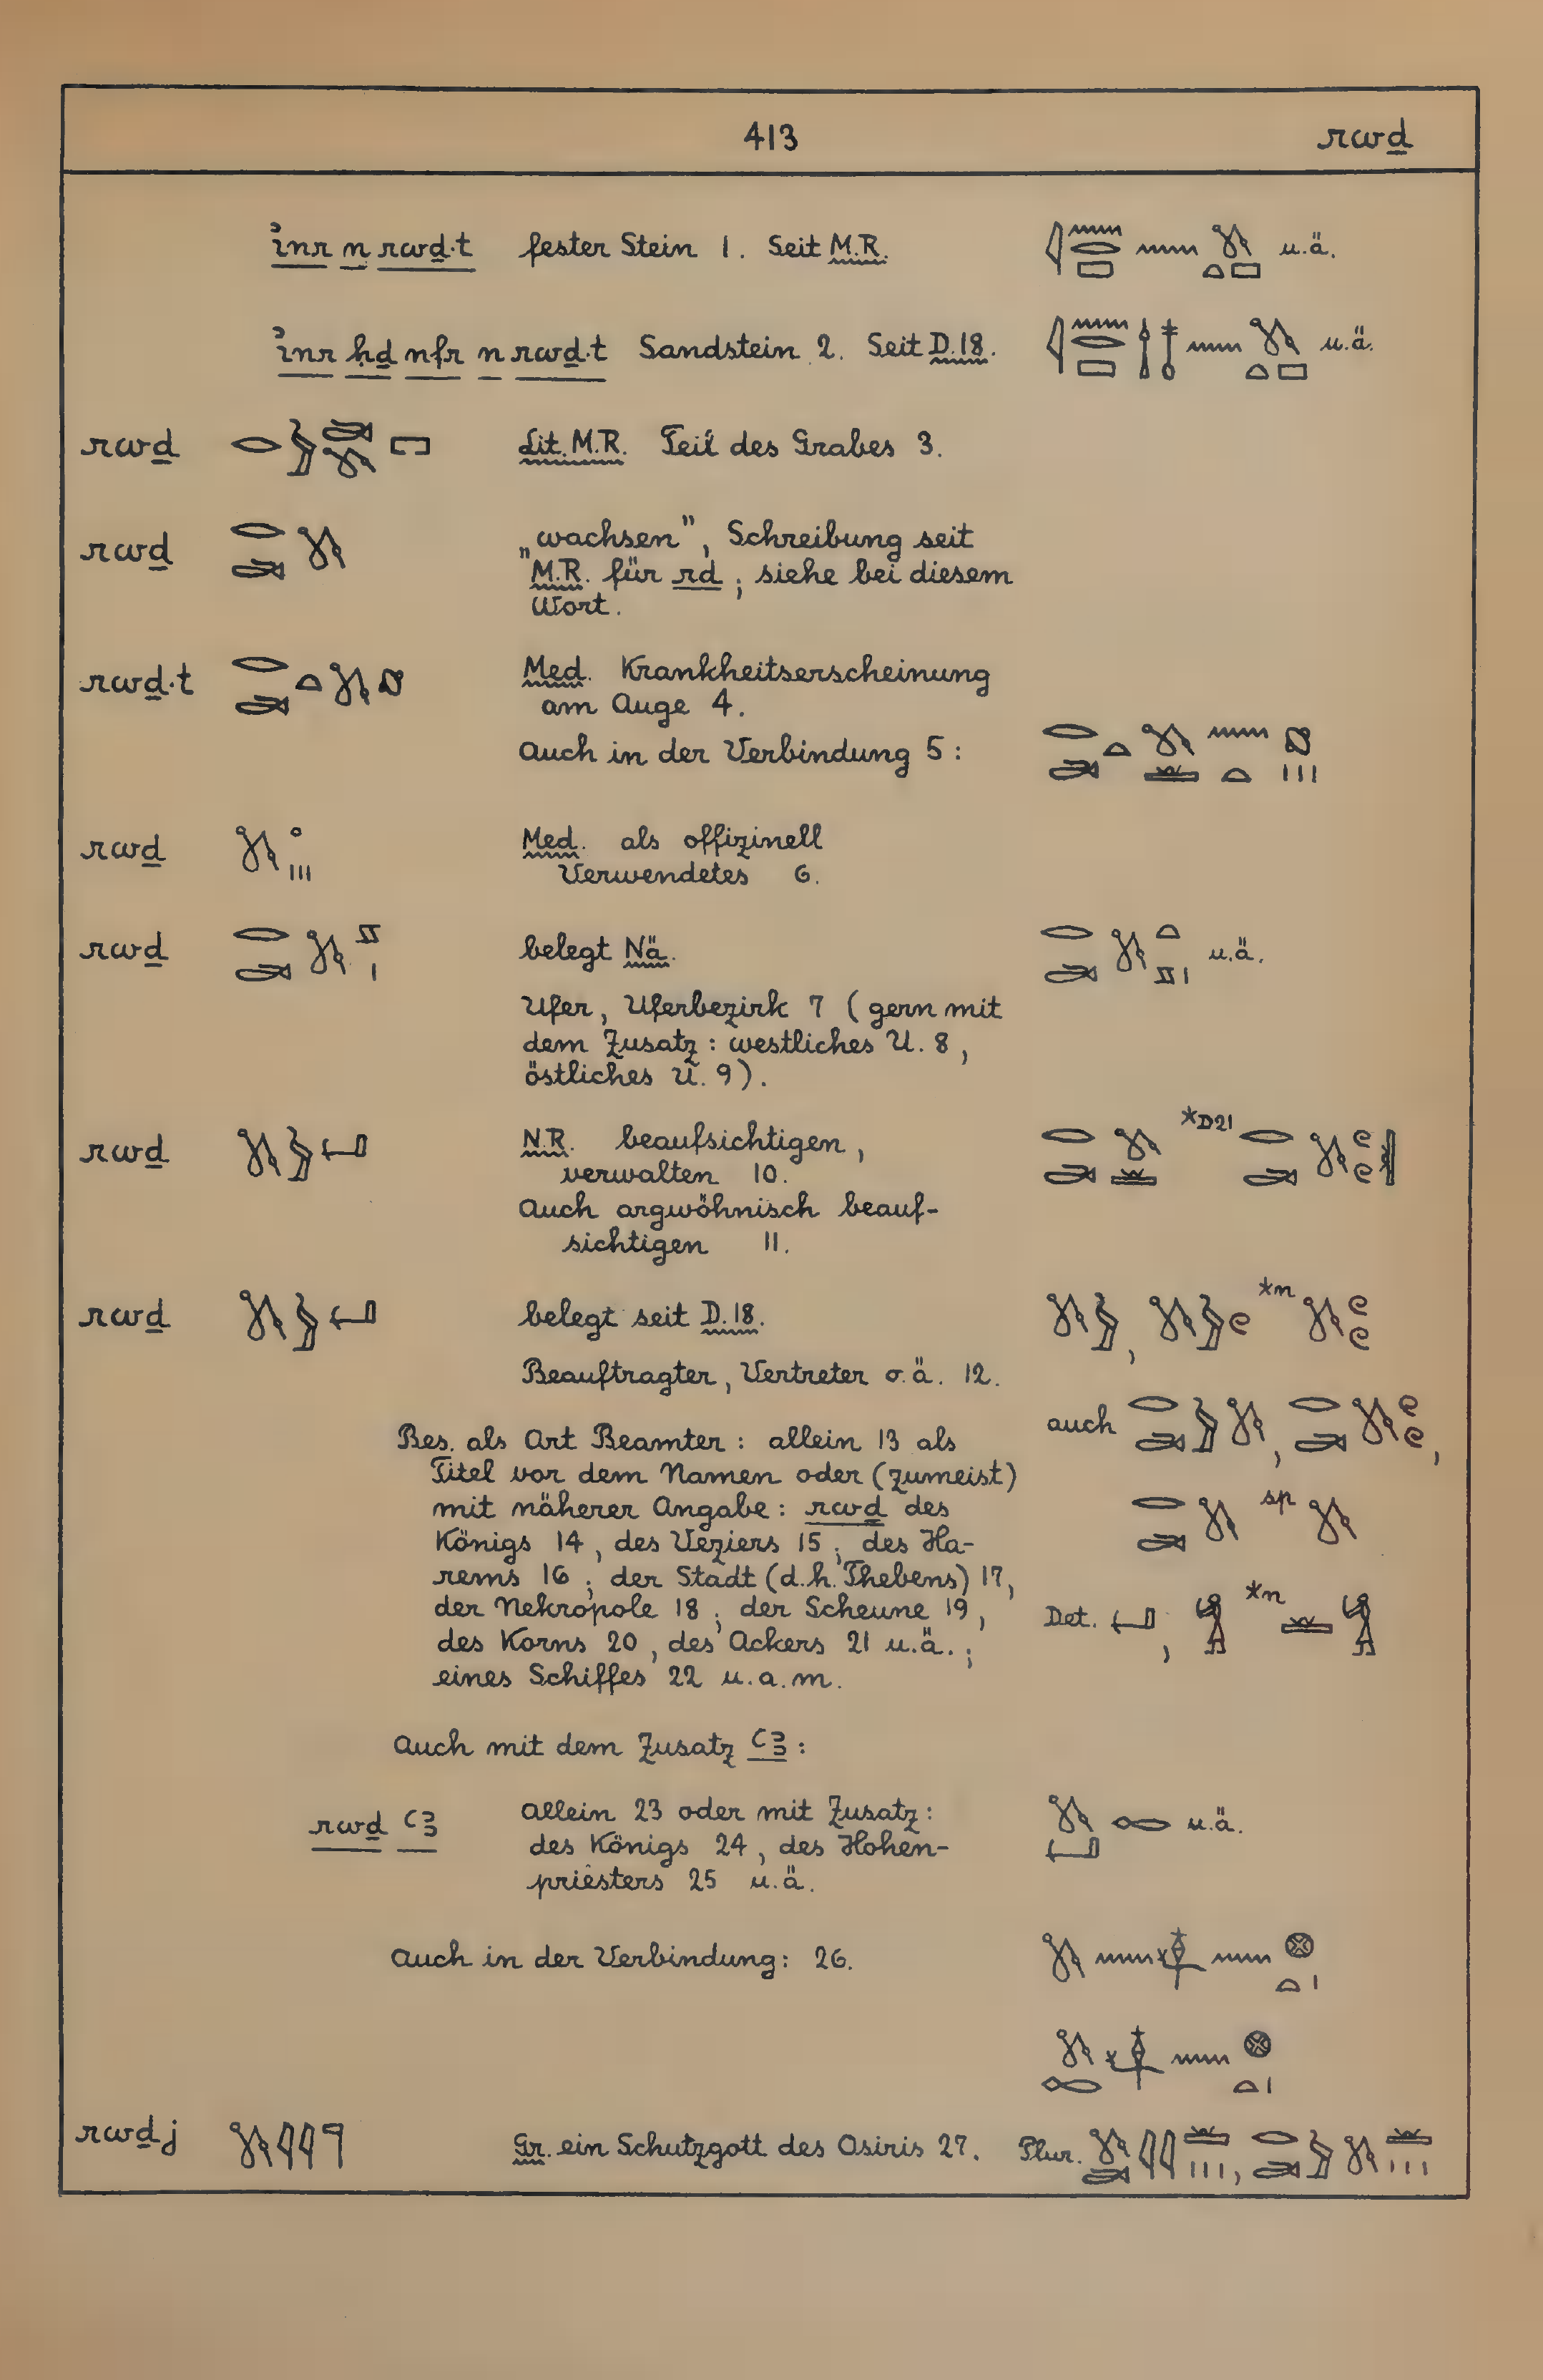 413 rwḏ
i͗nr n rwḏ·t fester Stein 1. Seit M.R. u.ä.
i͗nr ḥḏ nfr n rwḏ·t Sandstein 2. Seit D.18. u.ä.
rwḏ Lit. M.R. Teil des Grabes 3.
rwḏ „wachsen", Schreibung seit
M.R. für rd; siehe bei diesem
Wort.
rwḏ·t Med. Krankheitserscheinung
am Auge 4.
Auch in der Verbindung 5:
rwḏ Med. als offizinell
Verwendetes 6.
rwḏ belegt Nä. u.ä.
Ufer, Uferbezirk 7 (gern mit
dem Zusatz: westliches U. 8,
östliches U. 9).
rwḏ N.R. beaufsichtigen, *D21
verwalten 10.
Auch argwöhnisch beauf-
sichtigen 11.
rwḏ belegt seit D.18. , *n
Beauftragter, Vertreter o.ä. 12.
auch , ,
Bes. als Art Beamter: allein 13 als
Titel vor dem Namen oder (zumeist)
mit näherer Angabe: rwḏ des sp
Königs 14, des Veziers 15; des Ha-
rems 16; der Stadt (d.h. Thebens) 17,
der Nekropole 18; der Scheune 19, Det. , *n
des Korns 20, des Ackers 21 u.ä.;
eines Schiffes 22 u.a.m.
Auch mit dem Zusatz ꜥꜣ:
rwḏ ꜥꜣ allein 23 oder mit Zusatz: u.ä.
des Königs 24, des Hohen-
priesters 25 u.ä.
Auch in der Verbindung: 26.
rwḏj Gr. ein Schutzgott des Osiris 27. Plur. ,